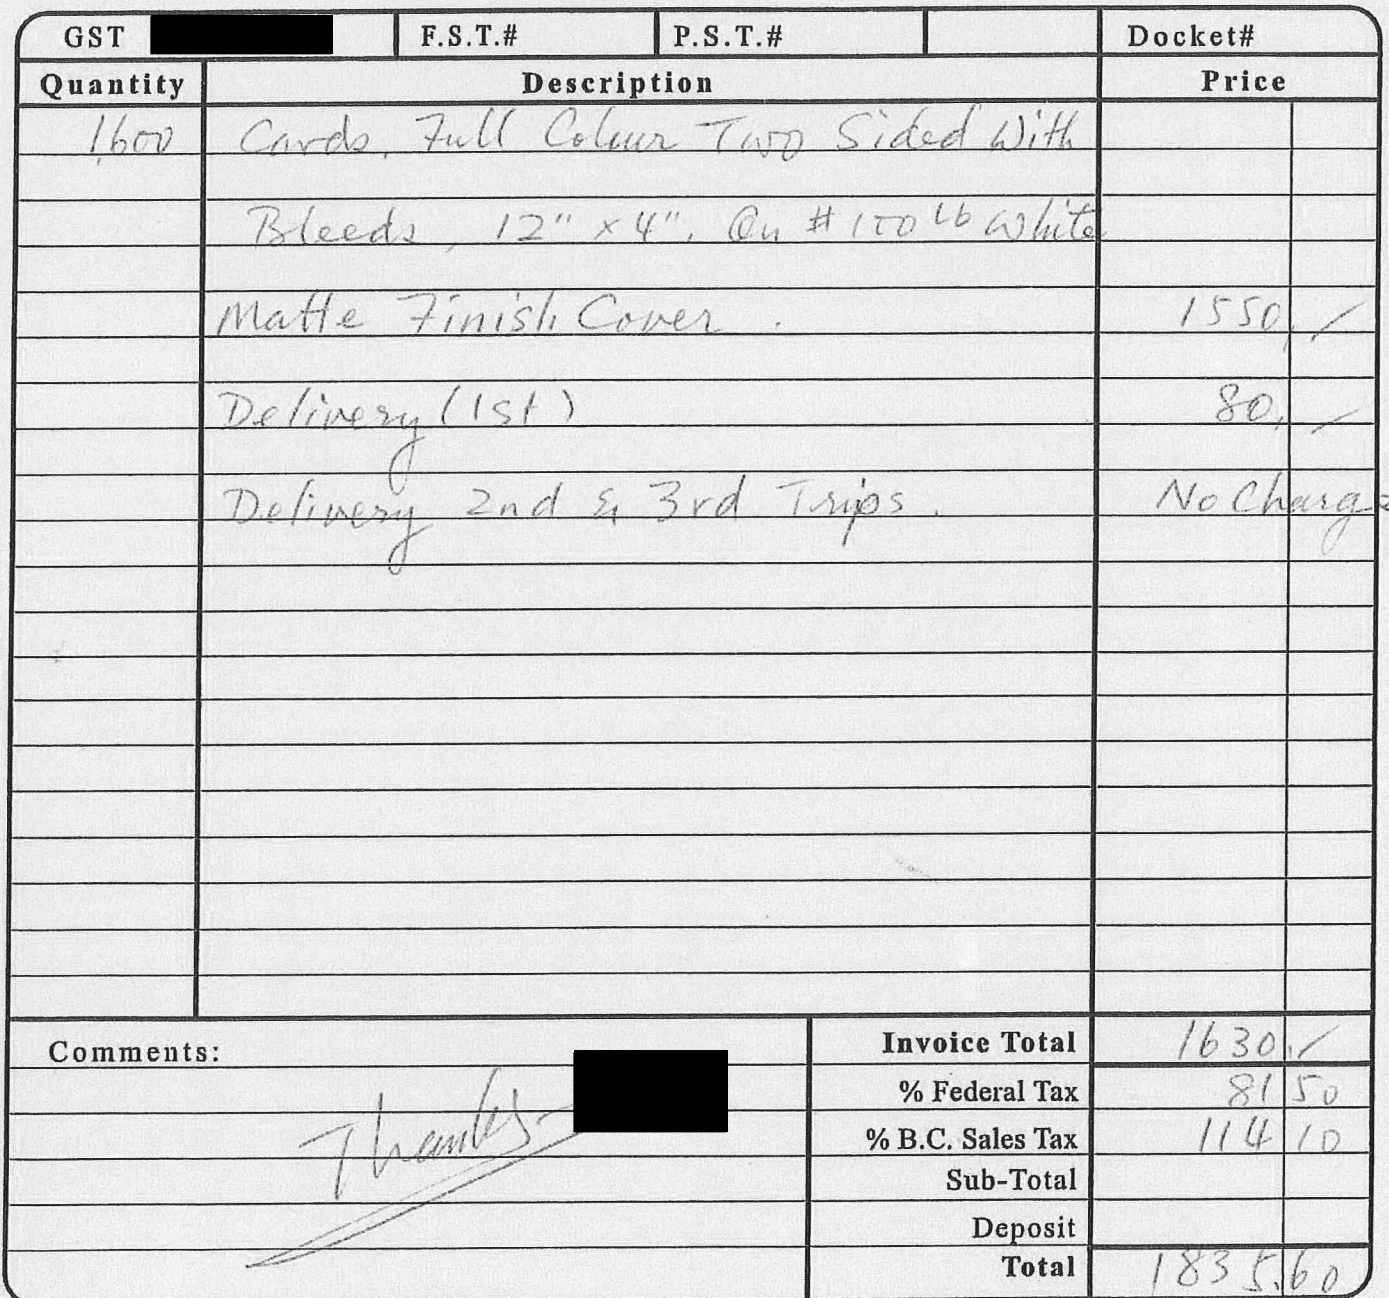 GST F.S.T.# P.S.T.# Docket#
Quantity Description Price
1600 Cards, Full Colour Two Sided With
Bleeds, 12" x 4". On #100 lb White
Matte Finish Cover. 1550./
Delivery (1st) 80./
Delivery 2nd & 3rd Trips. No Charge
Comments: Invoice Total 1630./
% Federal Tax 81 50
Thanks- % B.C. Sales Tax 114 10
Sub-Total
Deposit
Total 1835.60